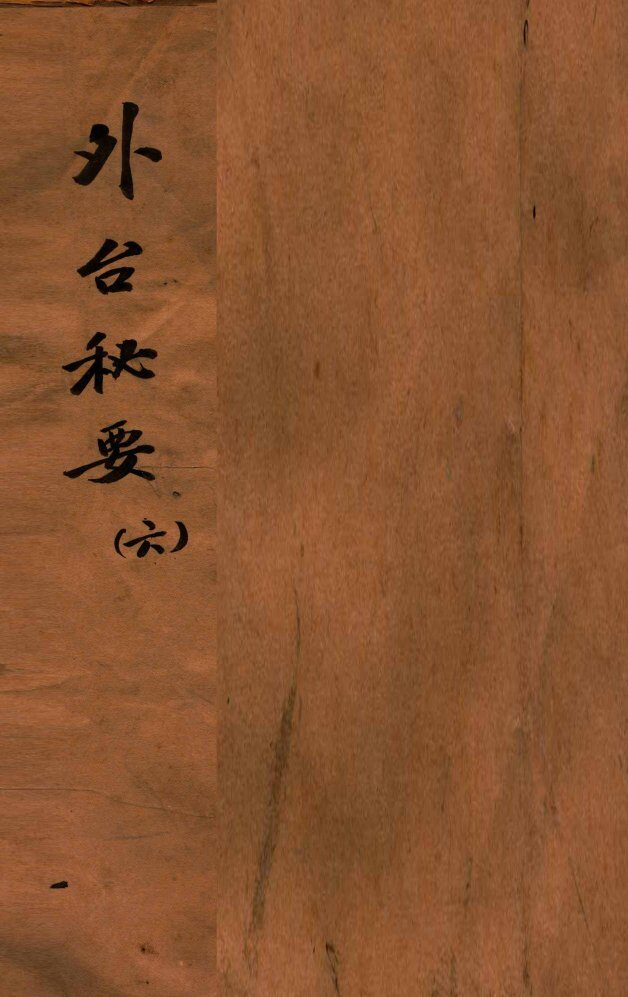 外台秘要
(六)